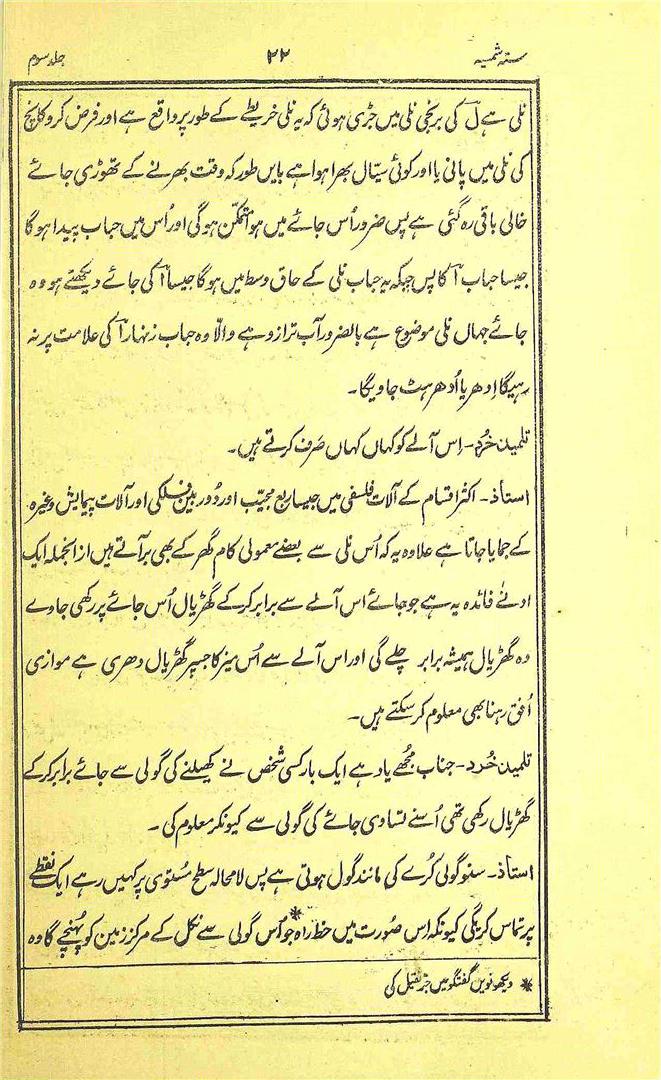 ستہ شمیہ ۲۲ جلد سوم
نلی ہے لؔ کی برنجی نلی میں جڑی ہوئی کہ یہ نلی خریطے کے طور پر واقع ہے اور فرض کرو کانچ
کی نلی میں پانی یا اور کوئی سیّال بھرا ہوا ہے بایں طور کہ وقت بھرنے کے تھوڑی جائے
خالی باقی رہ گئی ہے پس ضرور اُس جائے میں ہوا متمکّن ہوگی اور اُس میں حباب پیدا ہوگا
جیسا حباب آ کا پس جبکہ یہ حباب نلی کے حاق وسط میں ہوگا جیسا آ کی جائے دیکھتے ہو وہ
جائے جہاں نلی موضوع ہے بالضرور آب ترازو ہے والّا وہ حباب زنہار آ کی علامت پر نہ
رہیگا اِدھر یا اُدھر ہٹ جاویگا۔
تلمیذ خُرد۔ اِس آلے کو کہاں کہاں صَرف کرتے ہیں۔
استاذ۔ اکثر اقسام کے آلات فلسفی میں جیسا ربع مجیّب اور دُوربین فلکی اور آلات پیمایش وغیرہ
کے جمایا جاتا ہے علاوہ یہ کہ اُس نلی سے بعضے معمولی کام گھر کے بھی بر آتے ہیں از انجملہ ایک
ادنےٰ فائدہ یہ ہے جو جائے اس آلے سے برابر کرکے گھڑیال اُس جائے پر رکھی جاوے
وہ گھڑیال ہمیشہ برابر چلے گی اور اس آلے سے اُس میز کا جسپر گھڑیال دھری ہے موازی
اُفق رہنا بھی معلوم کر سکتے ہیں۔
تلمیذ خُرد۔ جناب مجھے یاد ہے ایک بار کسی شخص نے کھیلنے کی گولی سے جائے برابر کرکے
گھڑیال رکھی تھی اُسنے تساوی جائے کی گولی سے کیونکر معلوم کی۔
استاذ۔ سنو گولی کُرے کی مانند گول ہوتی ہے پس لا محالہ سطح مُستوی پر کہیں رہے ایک نقطے
پر تماس کریگی کیونکہ اِس صُورت میں خط راہ * جو اُس گولی سے نکل کے مرکز زمین کو پہُنچے گا وہ
* دیکھو نویں گفتگو میں جرّ ثقیل کی